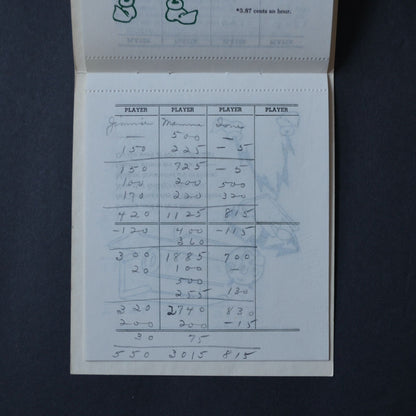 *3.87 cents an hour.
PLAYER PLAYER PLAYER PLAYER
Jennie Mamma
500 —
150 225 -5
150 725 -5
100 200 500
170 220 320
420 1125 815
-120 400 -115
360
300 1885 700
20 100 —
500
255 130
320 2740 830
200 200 -15
30 75
550 3015 815